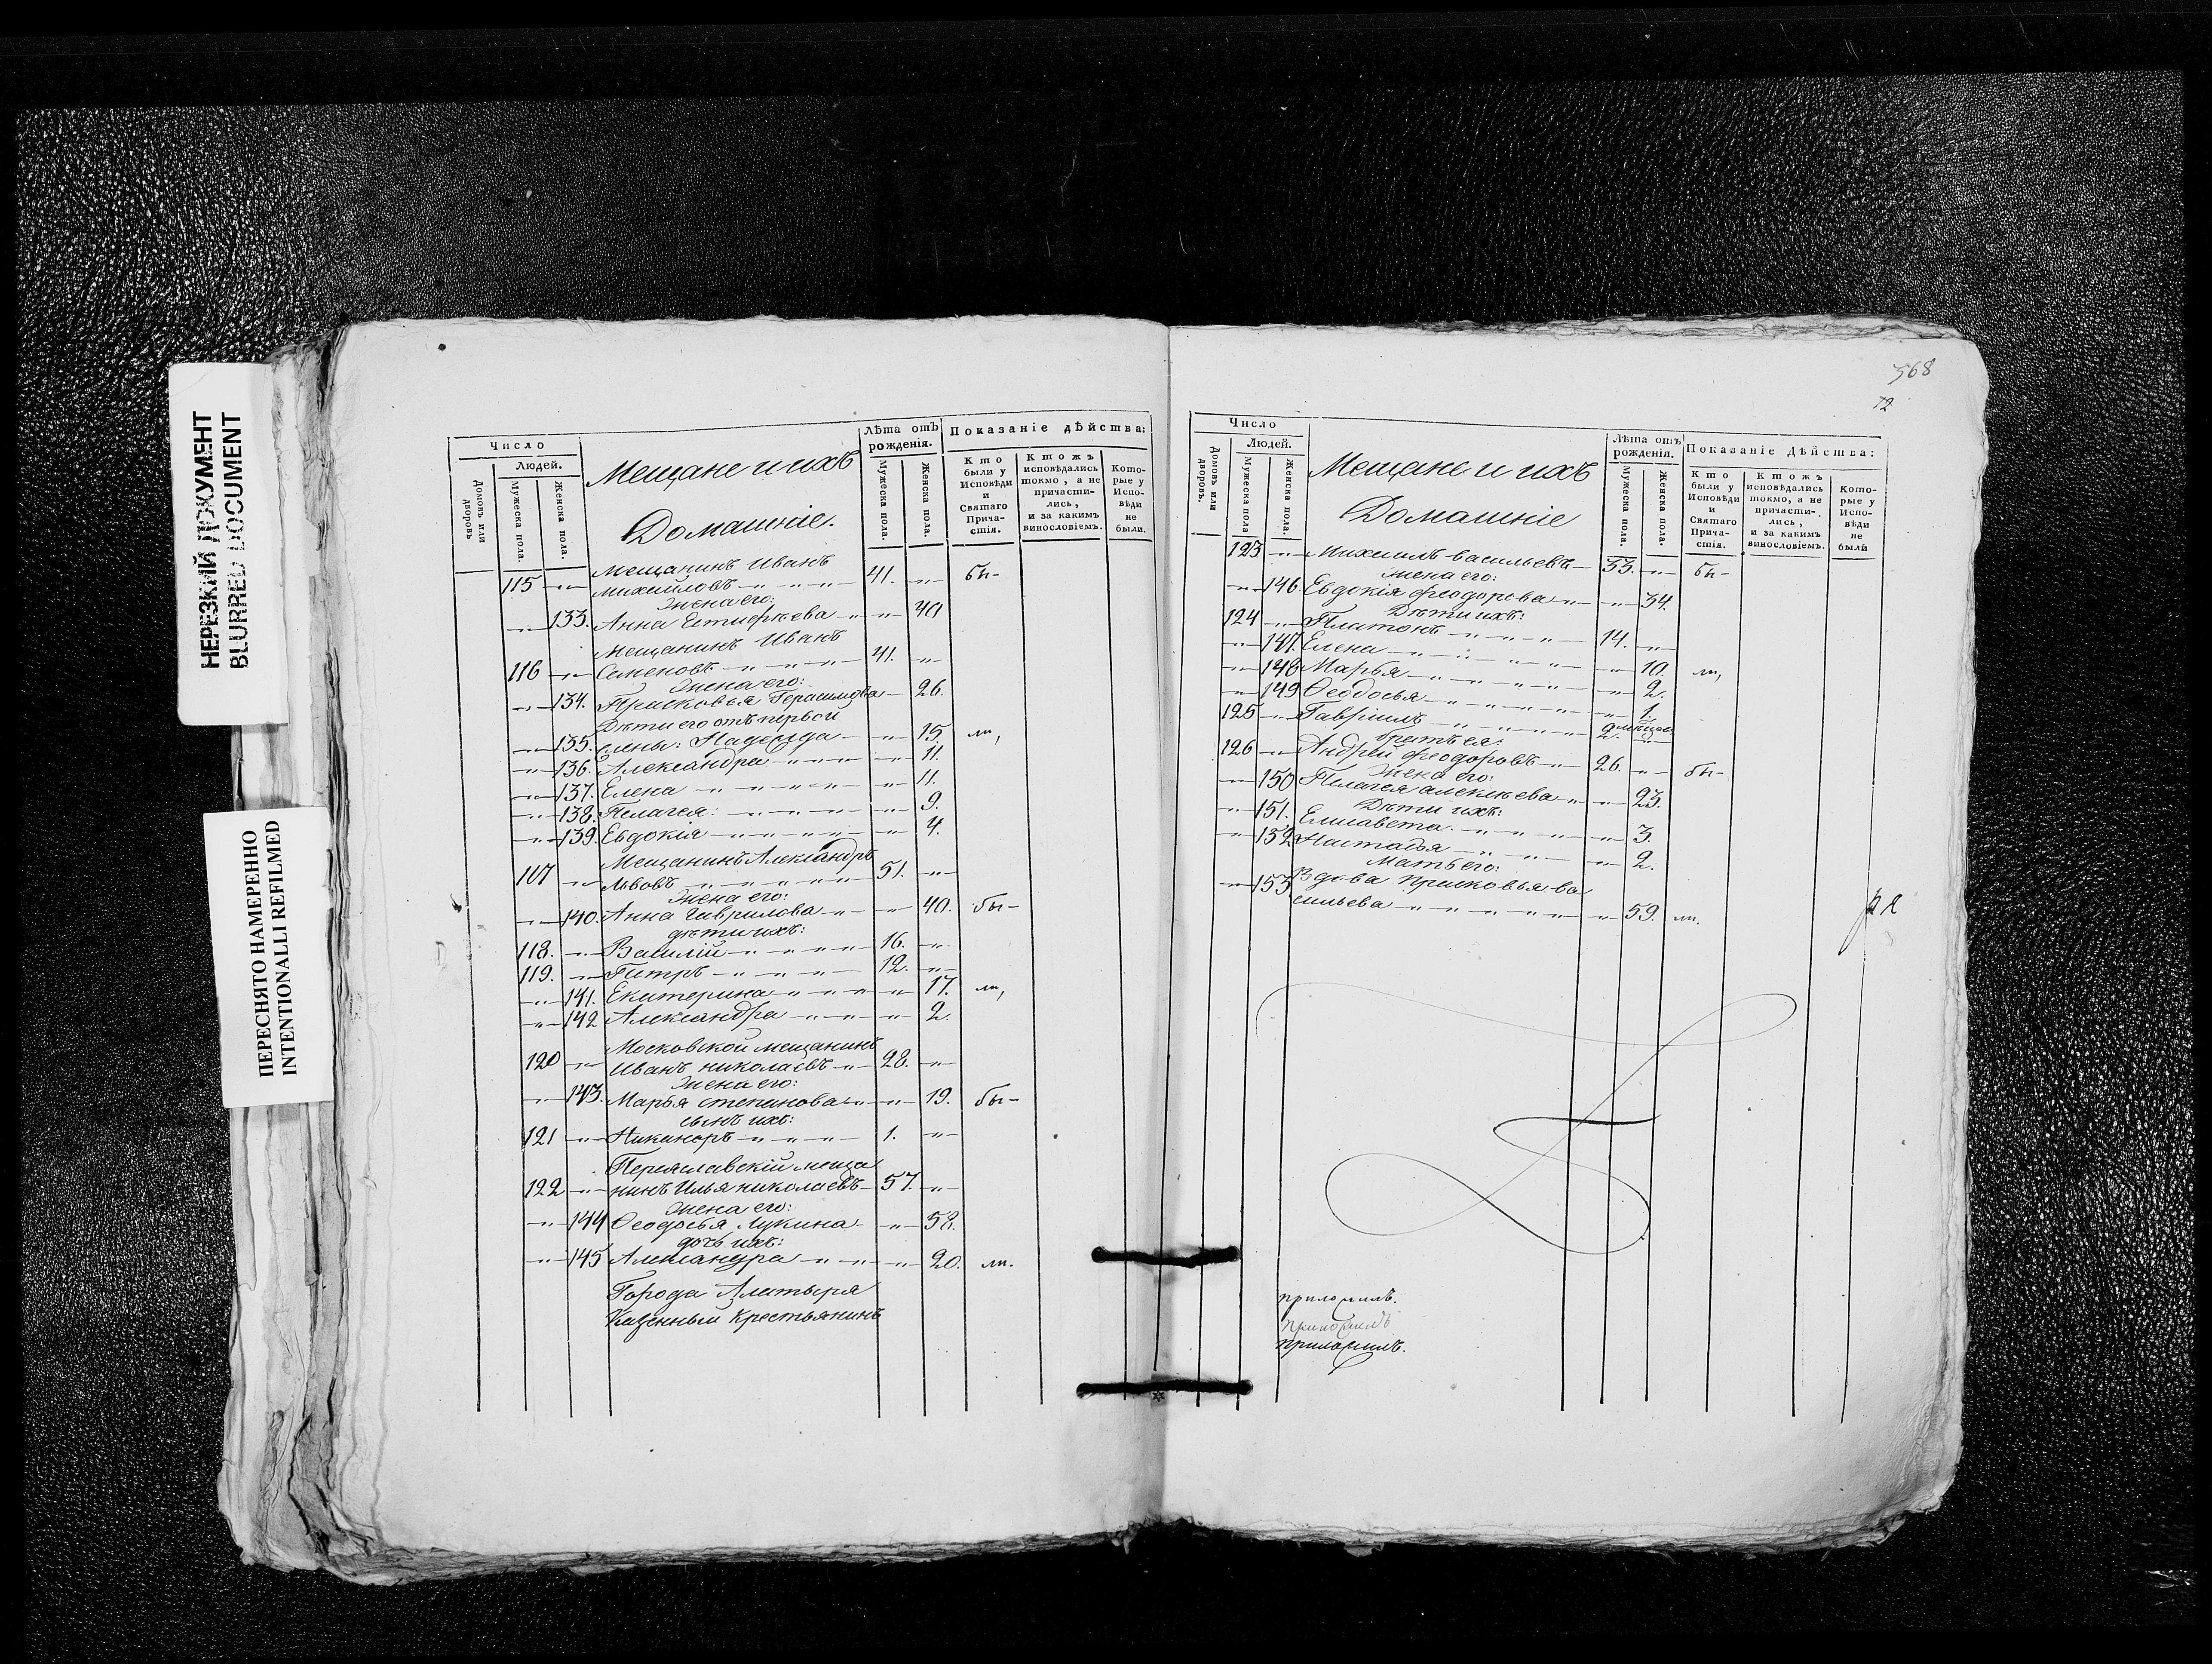 НЕРЕЗКИЙ ДОКУМЕНТ
BLURRED DOCUMENT
ПЕРЕСНЯТО НАМЕРЕННО
INTENTIONALLI REFILMED
Число
Людей.
Домовъ или дворовъ
Мужеска пола.
Женска пола.
Мещане и ихъ
Домашніе.
Лѣта отъ рожденія.
Мужеска пола.
Женска пола.
Показаніе дѣйства:
Кто были у Исповѣди и Святаго Причастія.
Ктожъ исповѣдались токмо, а не причастились, и за какимъ винословіемъ.
Которые у Исповѣди не были.
Мещанинъ Иванъ
115 Михайловъ 41. бы-
Жена его:
133. Анна 40
Мещанинъ Иванъ
116 Семеновъ 41.
Жена его:
134. Прасковья Герасимова 26.
Дѣти его отъ первой
135. жены: Надежда 15. ли,
136. Александра 11.
137. Елена 11.
138. Пелагея: 9.
139. Евдокія 4.
Мещанинъ Александръ
117 Львовъ 51.
Жена его:
140. Анна Гаврилова 40. бы-
дѣти ихъ:
118. Василій 16.
119. Петръ 12.
141. Екатерина 17. ли,
142 Александра 2.
Московской мещанинъ
120 Иванъ николаевъ 28.
Жена его:
143. Марья степанова 19. бы-
сынъ ихъ:
121 Никаноръ 1.
Переславскій меща
122 нинъ Илья николаевъ 57.
Жена его:
144 Ѳеодосья Лукина 58.
дочь ихъ:
145 Александра 20. ли.
Города Алатыря
Казенный крестьянинъ
568
72
Число
Людей.
Домовъ или дворовъ.
Мужеска пола
Женска пола.
Мещане и ихъ
Домашніе
Лѣта отъ рожденія.
Мужеска пола.
Женска пола.
Показаніе Дѣйства:
Кто были у Исповѣди и Святаго Причастія.
Ктожъ исповѣдались токмо, а не причастились, и за какимъ винословіемъ.
Которые у Исповѣди не были
123 Михаилъ васильевъ 33. бы-
жена его:
146. Евдокія феодорова 34.
Дѣти ихъ:
124 Платонъ 14.
147. Елена 10. ли,
148 Марья 2.
149 Ѳеодосья 1.
125 Гавріилъ 2
братъ ея:
126 Андрей феодоровъ 26. бы-
Жена его:
150 Пелагея алексѣева 23.
Дѣти ихъ:
151. Елисавета. 3.
152 Настасья 2.
Мать его:
153 Вдова Прасковья ва
сильева 59. ли.
приложилъ.
приложилъ
приложилъ.